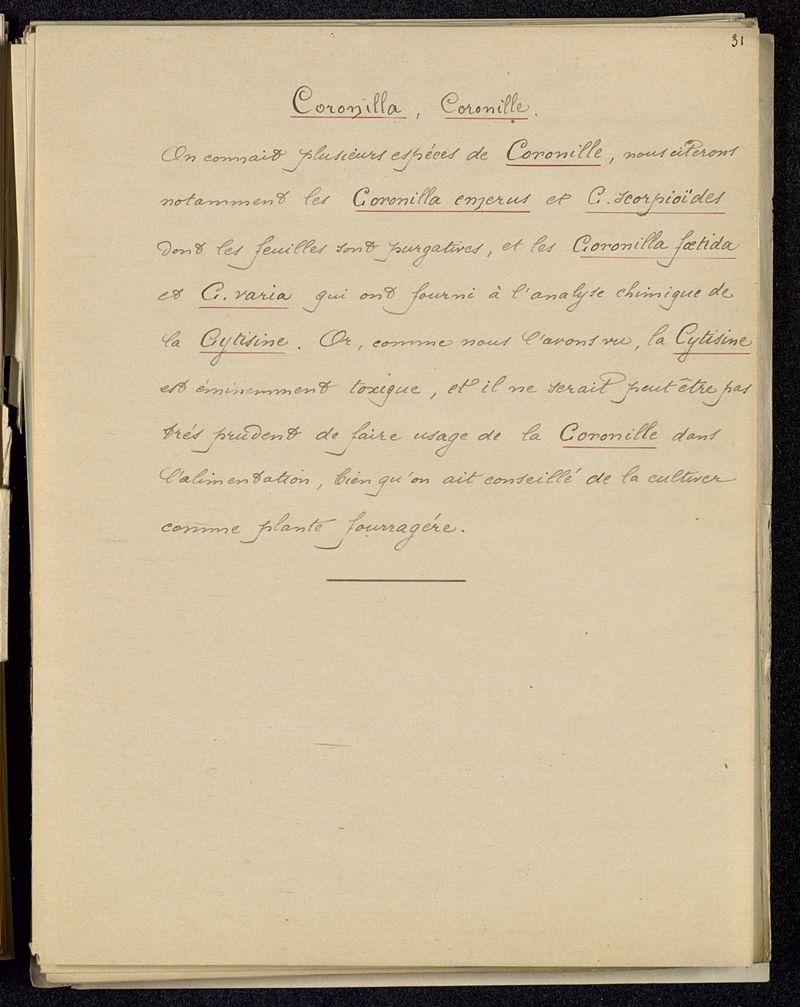 31
Coronilla, Coronille.
On connait plusieurs espéces de Coronille, nous citerons
notamment les Coronilla emerus et C. scorpioïdes
dont les feuilles sont purgatives, et les Coronilla fœtida
et C. varia qui ont fourni à l'analyse chimique de
la Cytisine. Or, comme nous l'avons vu, la Cytisine
est éminemment toxique, et il ne serait peut être pas
trés prudent de faire usage de la Coronille dans
l'alimentation, bien qu'on ait conseillé de la cultiver
comme plante fourragére.